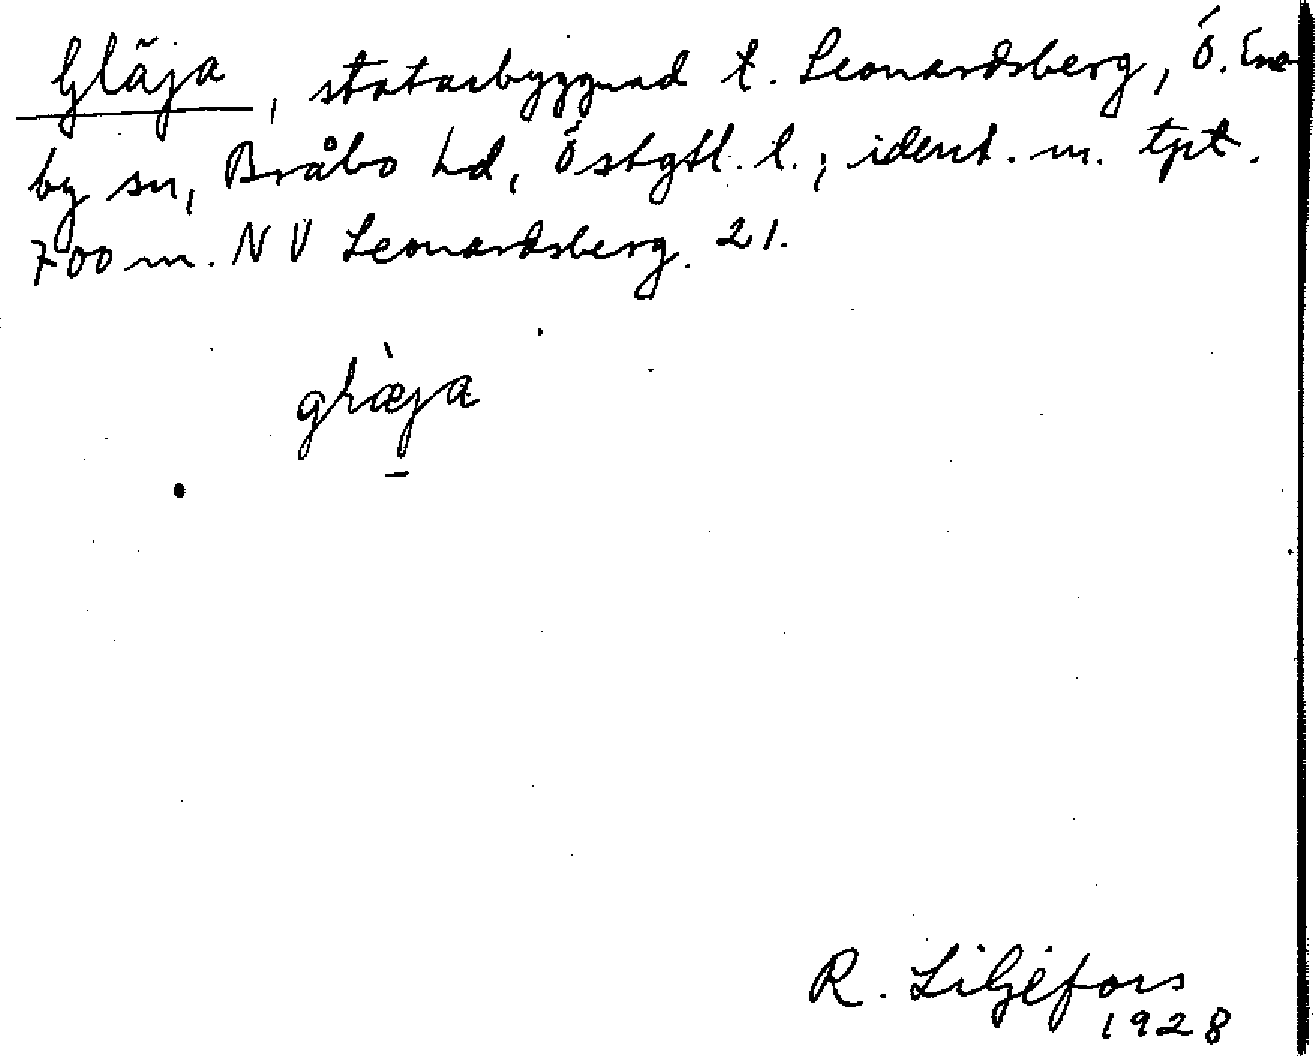 Gläja, statarbyggnad t. Leonardsberg, Ö. Ene-
by sn, Bråbo hd, Östgtl. l.; ident. m. tpt.
700 m. NV Leonardsberg. 21.
glæ̀ja
R. Liljefors
1928